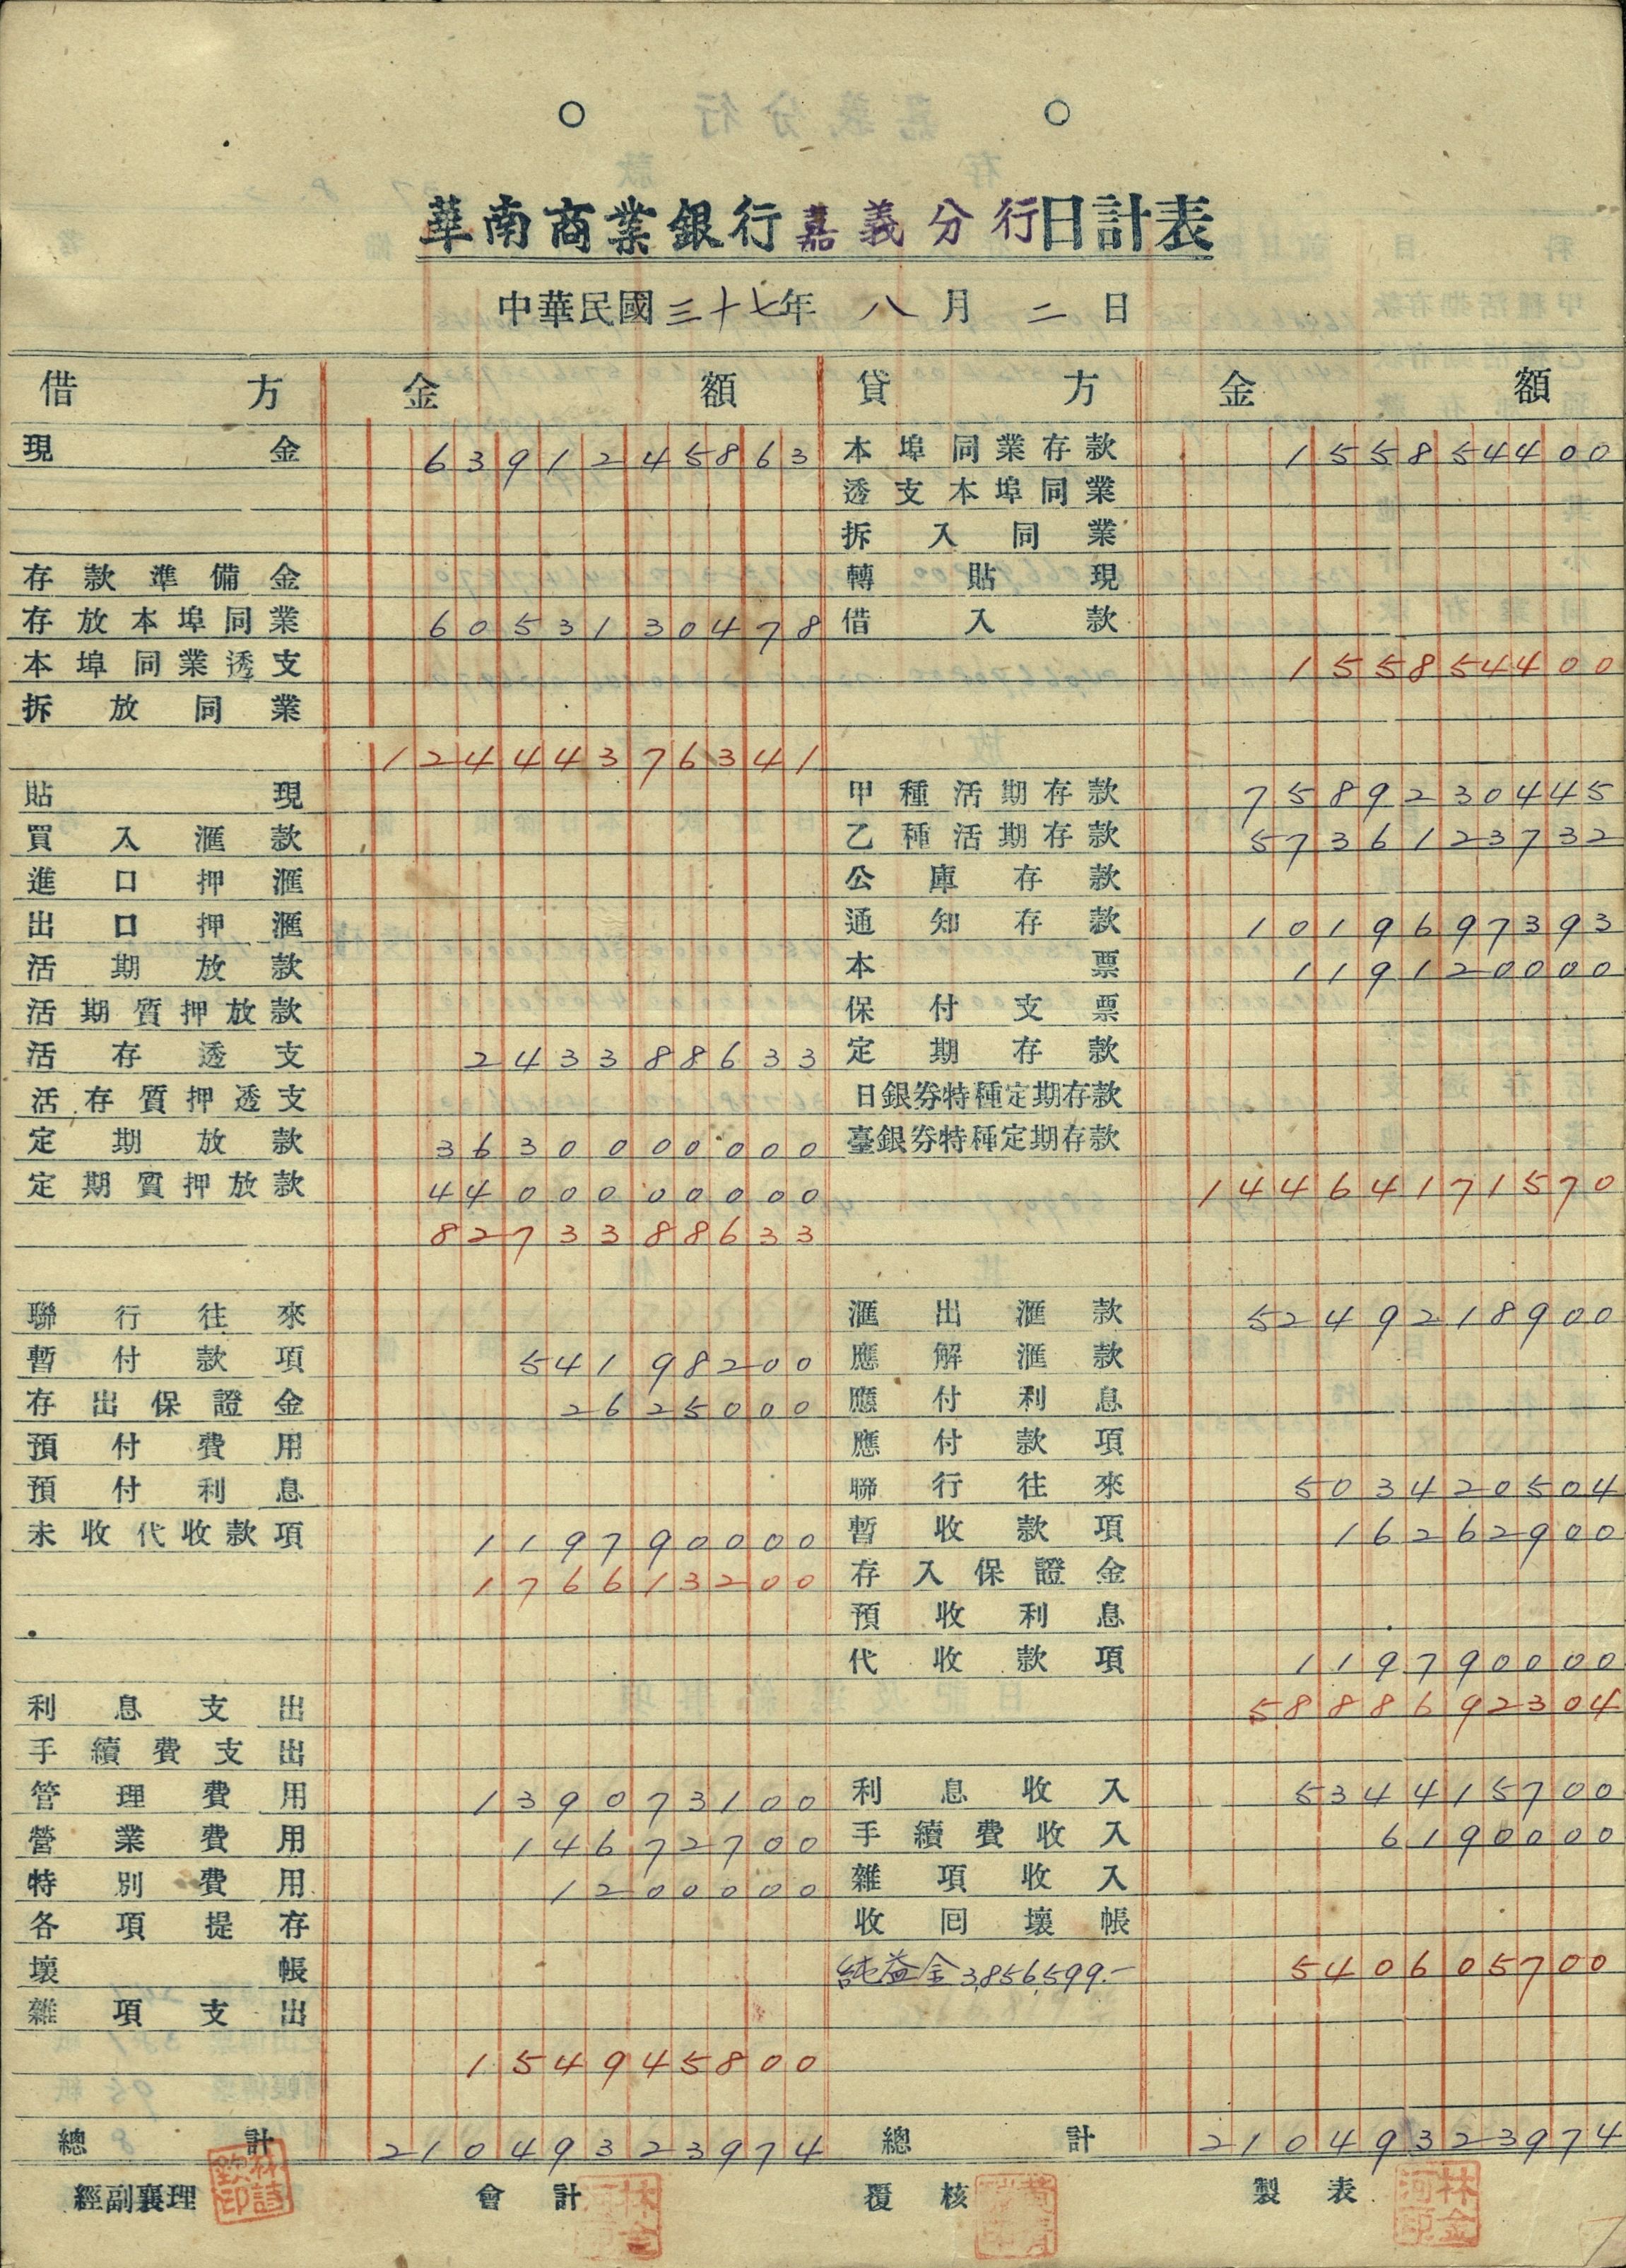 華南商業銀行嘉義分行日計表
中華民國三十七年 八月 二日
借方 金額 貸方 金額
現金 6391245863 本埠同業存款 155854400
透支本埠同業
拆入同業
存款準備金 轉貼現
存放本埠同業 6053130478 借入款
本埠同業透支 155854400
拆放同業
12444376341
貼現 甲種活期存款 7589230445
買入滙款 乙種活期存款 5736123732
進口押滙 公庫存款
出口押滙 通知存款 1019697393
活期放款 本票 119120000
活期質押放款 保付支票
活存透支 243388633 定期存款
活存質押透支 日銀券特種定期存款
定期放款 3630000000 臺銀券特種定期存款
定期質押放款 4400000000 14464171570
8273388633
聯行往來 滙出滙款 5249218900
暫付款項 54198200 應解滙款
存出保證金 2625000 應付利息
預付費用 應付款項
預付利息 聯行往來 503420504
未收代收款項 119790000 暫收款項 16262900
176613200 存入保證金
預收利息
代收款項 119790000
利息支出 5888692304
手續費支出
管理費用 139073100 利息收入 534415700
營業費用 14672700 手續費收入 6190000
特別費用 1200000 雜項收入
各項提存 收囘壞帳
壞帳 純益金3,856,599.- 540605700
雜項支出
154945800
總計 21049323974 總計 21049323974
經副襄理 會計 覆核 製表
林金河印